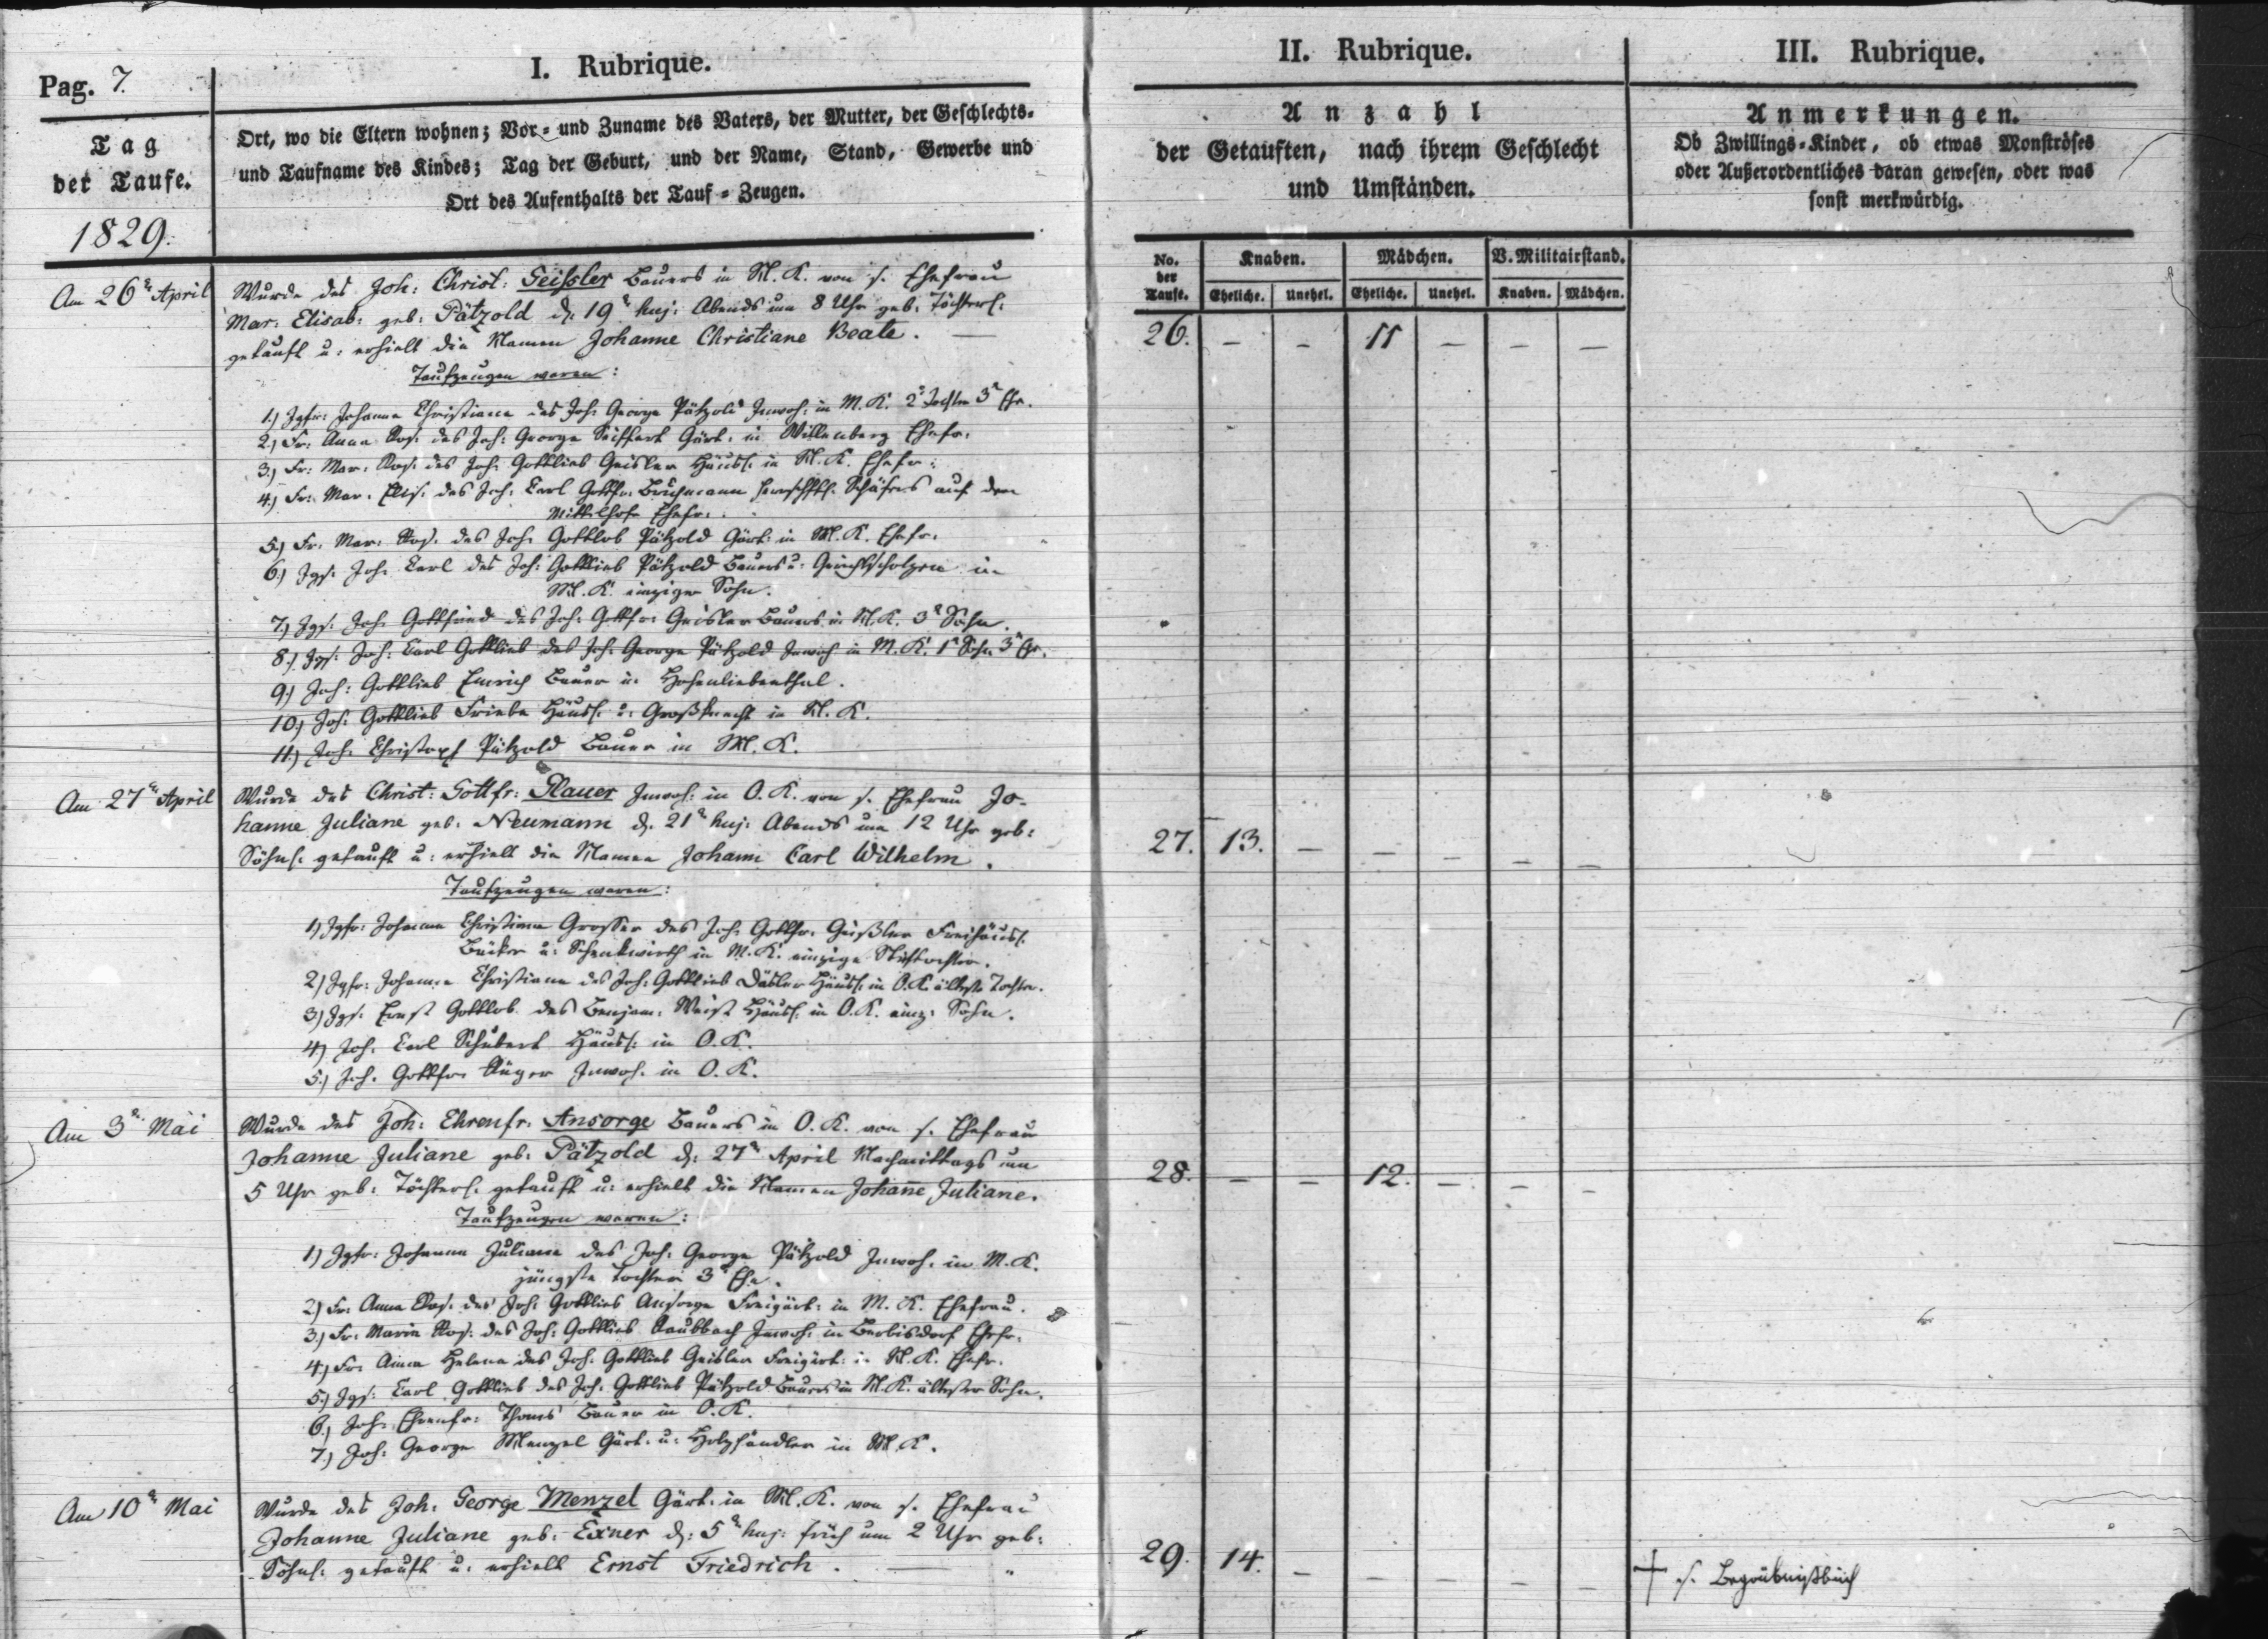 Pag. 7.
I. Rubrique.
II. Rubrique.
III. Rubrique.
Tag
der Taufe.
1829.
Ort, wo die Eltern wohnen; Vor- und Zuname des Vaters, der Mutter, der Geschlechts-
und Taufname des Kindes; Tag der Geburt, und der Name, Stand, Gewerbe und
Ort des Aufenthalts der Tauf-Zeugen.
Anzahl
der Getauften, nach ihrem Geschlecht
und Umständen.
Anmerkungen.
Ob Zwillings-Kinder, ob etwas Monströses
oder Außerordentliches daran gewesen, oder was
sonst merkwürdig.
No. der Taufe.
Knaben. Mädchen. V. Militairstand.
Eheliche. Unehel. Eheliche. Unehel. Knaben. Mädchen.
Am 26t April
Wurde des Joh: Christ: Geissler Bauers in M. K. von s. Ehefrau
Mar: Elisab: geb: Pätzold d: 19t huj: Abends um 8 Uhr geb: Töchterl:
getauft u: erhielt die Namen Johanne Christiane Beate. —
26. – – 11 – – –
Taufzeugen waren:
1.) Jgfr: Johanne Christiane des Joh: George Pätzold Inwoh: in M. K. 2t Tochter 3t Ehe.
2.) Fr: Anna Ros: des Joh: George Seiffert Gärt: in Willenberg Ehefr:
3.) Fr: Mar: Ros: des Joh: Gottlieb Geisler Häusl: in M. K. Ehefr:
4.) Fr: Mar: Elis: des Joh: Carl Gottfr: herrschftl: Schäfers auf dem
Mittelhofe Ehefr:
5.) Fr: Mar: Ros: des Joh: Gottlob Pätzold Gärt: in M. K. Ehefr:
6.) Jgs: Joh: Carl des Joh: Gottlieb Pätzold Bauers u: Gerichtscholzen in
M. K. einziger Sohn.
7.) Jgs: Joh: Gottfried des Joh: Gottfr: Geisler Bauers in M. K. 3t Sohn.
8.) Jgs: Joh: Carl Gottlieb des Joh: George Pätzold Inwoh in M. K. 1t Sohn 3t Ehe.
9.) Joh: Gottlieb Emrich Bauer in Hohenliebenthal.
10.) Joh: Gottlieb Friebe Häusl: u: Großknecht in M. K.
11.) Joh: Christoph Pätzold Bauer in M. K.
Am 27t April
Wurde des Christ: Gottfr: Plauer Inwoh: in O. K. von s. Ehefrau Jo-
hanne Juliane geb: Neumann d: 21t huj: Abends um 12 Uhr geb:
Söhnl: getauft u: erhielt die Namen Johann Carl Wilhelm.
27. 13. – – – – –
Taufzeugen waren:
1.) Jgfr: Johanne Christiane Grosser des Joh: Gottfr: Geißler Freihäusl:
Bäcker u: Schenkwirth in M. K. einzige Stieftochter.
2.) Jgfr: Johanne Christiane des Joh: Gottlieb Häusl: in O. K. älteste Tochter.
3.) Jgs: Ernst Gottlob des Benjam: Weist Häusl: in O. K. einz: Sohn.
4.) Joh: Carl Schubert Häusl: in O. K.
5.) Joh: Gottfr: Inwoh: in O. K.
Am 3t Mai
Wurde des Joh: Ehrenfr: Ansorge Bauers in O. K. von s. Ehefrau
Johanne Juliane geb: Pätzold d: 27t April Nachmittags um
5 Uhr geb: Töchterl: getauft u: erhielt die Namen Johañe Juliane.
28. – – 12. – – –
Taufzeugen waren:
1.) Jgfr: Johanne Juliane des Joh: George Pätzold Inwoh: in M. K.
jüngste Tochter 3t Ehe.
2.) Fr: Anna Ros: des Joh: Gottlieb Ansorge Freigärt: in M. K. Ehefrau.
3.) Fr: Maria Ros: des Joh: Gottlieb Raubbach Inwoh: in Berbisdorf Ehefr:
4.) Fr: Anna Helena des Joh: Gottlieb Geisler Freigärt: in M. K. Ehefr:
5.) Jgs: Carl Gottlieb des Joh: Gottlieb Pätzold Bauers in M. K. ältester Sohn.
6.) Joh: Ehrenfr: Thoms Bauer in O. K.
7.) Joh: George Menzel Gärt: u: Holzhändler in M. K.
Am 10t Mai
Wurde des Joh: George Menzel Gärt: in M. K. von s. Ehefrau
Johanne Juliane geb: Exner d: 5t huj: früh um 2 Uhr geb:
Söhnl: getauft u: erhielt Ernst Friedrich. —
29. 14. – – – – –
† s. Begräbnißbuch